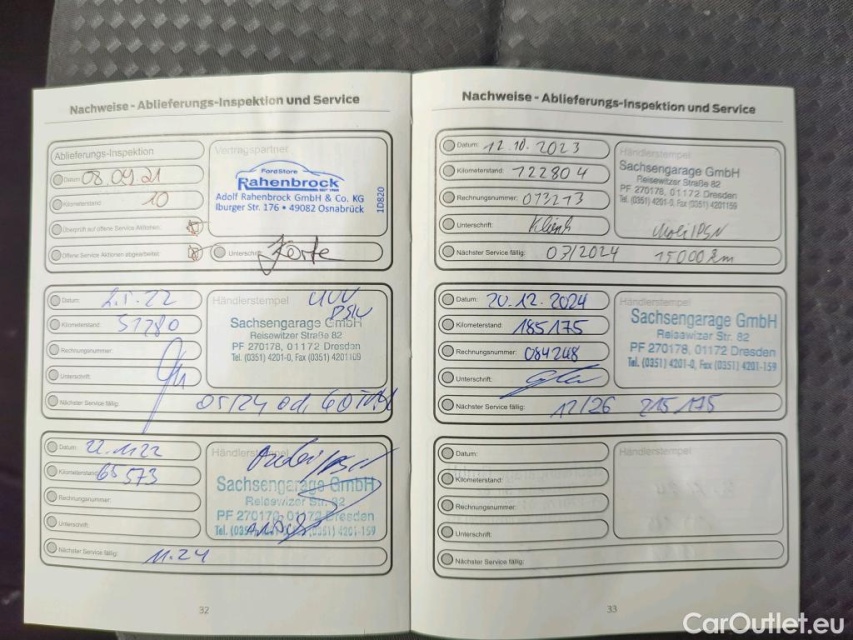 Nachweise - Ablieferungs-Inspektion und Service
Ablieferungs-Inspektion
Datum: 08.09.21
Kilometerstand: 10
Überprüft auf offene Service-Aktionen:
Offene Service Aktionen abgearbeitet:
Unterschrift:
Vertragspartner
FordStore
Rahenbrock
Adolf Rahenbrock GmbH & Co. KG
Iburger Str. 176 • 49082 Osnabrück
1D820
Datum: 2.5.22
Kilometerstand: 51780
Rechnungsnummer:
Unterschrift:
Nächster Service fällig: 05/24 od.
Händlerstempel
Sachsengarage GmbH
Reisewitzer Straße 82
PF 270178, 01172 Dresden
Tel. (0351) 4201-0, Fax (0351) 4201109
Datum: 22.11.22
Kilometerstand: 65573
Rechnungsnummer:
Unterschrift:
Nächster Service fällig: 11.24
Händlerstempel
Sachsengarage GmbH
Reisewitzer Str. 82
PF 270178, 01172 Dresden
Tel. (0351) 4201-159
32
Nachweise - Ablieferungs-Inspektion und Service
Datum: 12.10.2023
Kilometerstand: 122804
Rechnungsnummer: 073213
Unterschrift:
Nächster Service fällig: 03/2024 15000 km
Händlerstempel
Sachsengarage GmbH
Reisewitzer Straße 82
PF 270178, 01172 Dresden
Tel. (0351) 4201-0, Fax (0351) 4201159
Datum: 20.12.2024
Kilometerstand: 185175
Rechnungsnummer: 084248
Unterschrift:
Nächster Service fällig: 12/26 215175
Händlerstempel
Sachsengarage GmbH
Reisewitzer Str. 82
PF 270178, 01172 Dresden
Tel. (0351) 4201-0, Fax (0351) 4201-159
Datum:
Kilometerstand:
Rechnungsnummer:
Unterschrift:
Nächster Service fällig:
Händlerstempel
33
CarOutlet.eu